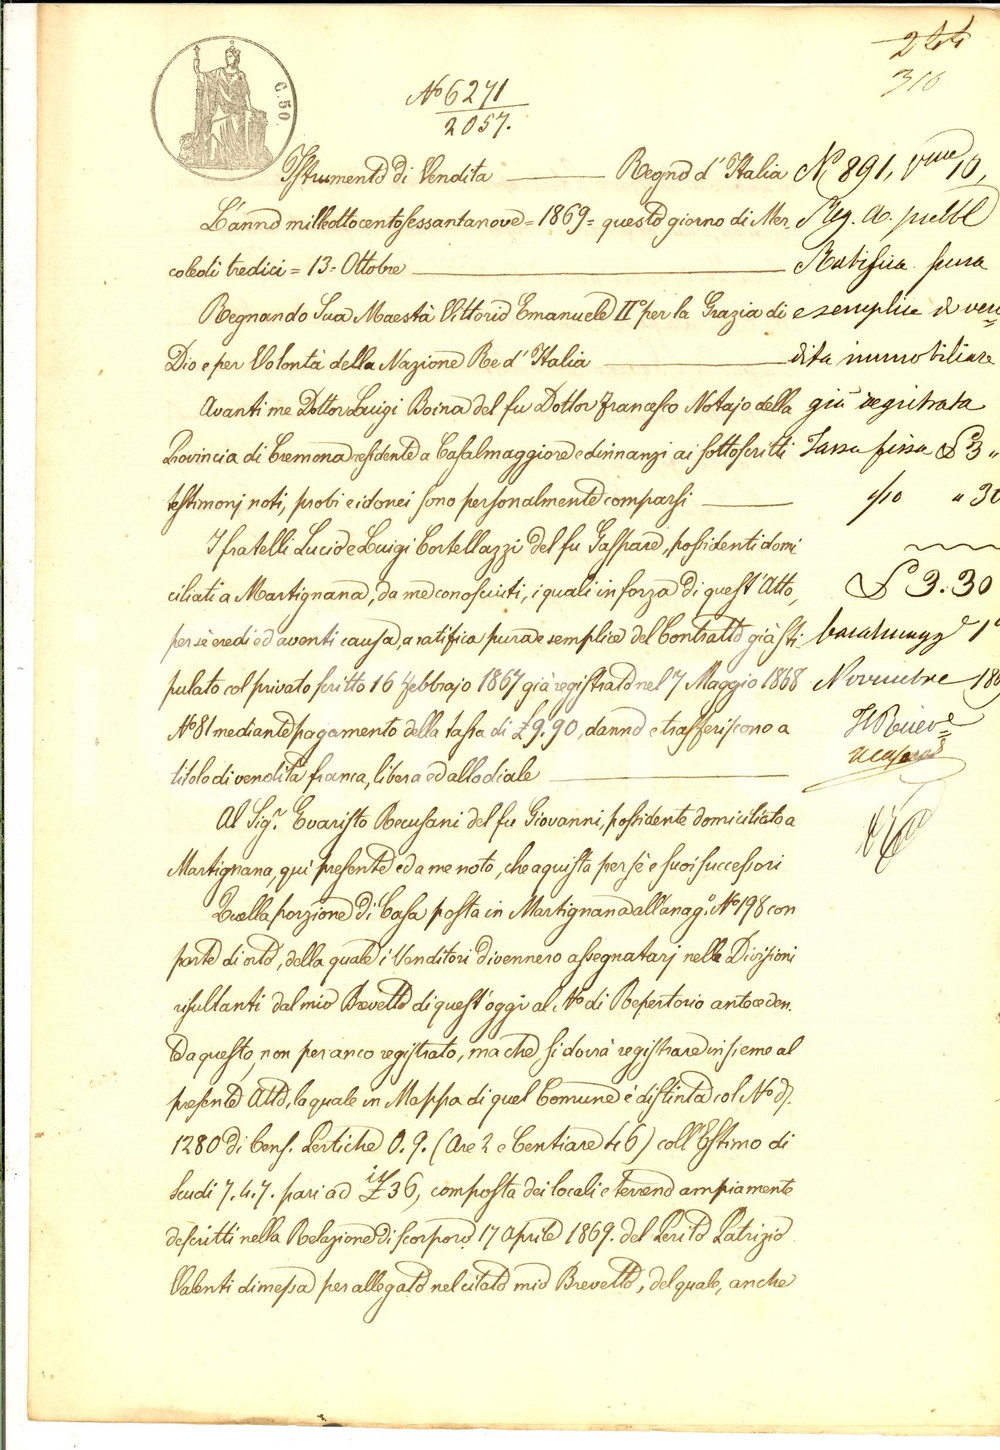 244
310
C. 50
No 6271
2057.
Istrumento di Vendita — Regno d'Italia
L'anno milleottocentosessantanove = 1869 = questo giorno di Mer-
coledì tredici = 13 = Ottobre
Regnando Sua Maestà Vittorio Emanuele II° per la Grazia di
Dio e per Volontà della Nazione Re d'Italia
Avanti me Dottor Luigi Boina del fu Dottor Francesco Notajo della
Provincia di Cremona residente a Casalmaggiore e dirinanzi ai sottoscritti
testimonj noti, probi e idonei sono personalmente comparsi
I fratelli Lucio e Luigi Cortellazzi del fu Gaspare, possidenti domi
ciliati a Martignana, da me conosciuti, i quali in forza di quest'Atto,
per sè eredi ed aventi causa, a ratifica pura e semplice del Contratto già sti-
pulato col privato scritto 16 Febbrajo 1867 già registrato nel 7 Maggio 1868
No 81 mediante pagamento della tassa di £ 9.90, danno e trasferiscono a
titolo di vendita franca, libera ed allodiale
Al Sigr. Evaristo Recusani del fu Giovanni, possidente domiciliato a
Martignana, qui presente ed a me noto, che aquista per sè e suoi successori
Quella porzione di Casa posta in Martignana all'anag.° No 198 con
parte di orto, della quale i Venditori divennero assegnatarj nelle Divisioni
risultanti dal mio Brevetto di quest'oggi al No di Repertorio anteceden.
te a questo, non per anco registrato, ma che si dovrà registrare insieme al
presente Atto, la quale in Mappa di quel Comune è distinta col No di
1280 di Cens. Pertiche 0. 9. (Are 2 e Centiare 46) coll'Estimo di
Scudi 7. 4. 7. pari ad it £ 36, composta dei locali e terreno ampiamente
descritti nella Relazione di scorporo 17 Aprile 1869. del Perito Patrizio
Valenti dimessa per allegato nel citato mio Brevetto, del quale, anche
N 891, Vme 10,
Reg. a. pubbl
Ratifica pura
e semplice di ven
dita immobiliare
già registrata
Tassa fissa £ 3 "
1/10 " 30
£ 3. 30
Casalmagge 1°
Novembre 186
Il Ricev=e